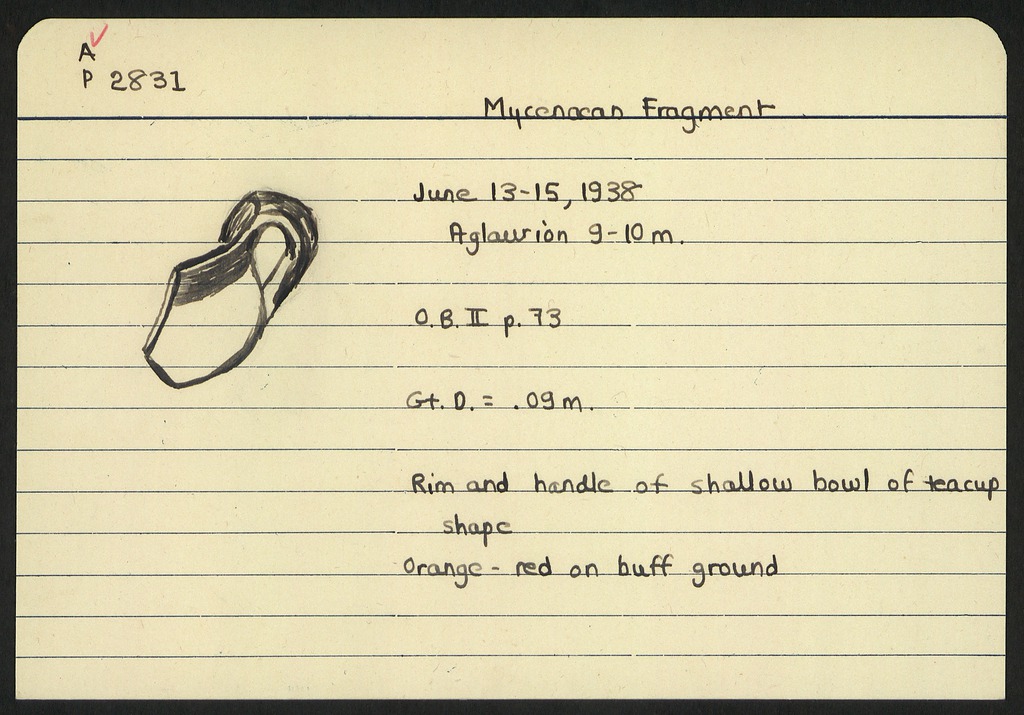 A
P 2831
Mycenaean Fragment
June 13-15, 1938
Aglaurion 9-10 m.
O.B. II p. 73
Gt. D. = .09 m.
Rim and handle of shallow bowl of teacup
shape
Orange - red on buff ground